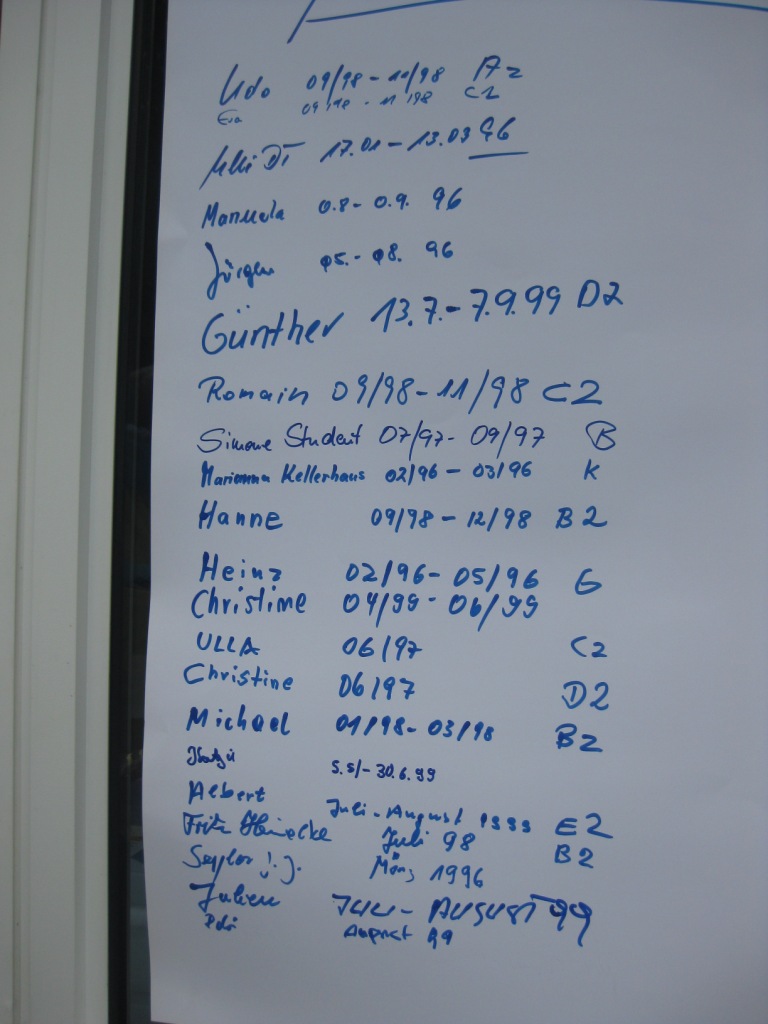 Udo 09/98 - 11/98 A2
Eva 09/98 - 11/98 C1
17.01 - 13.03 96
Manuela 0.8 - 0.9. 96
Jürgen 05. - 08. 96
Günther 13.7. - 7.9.99 D2
Romain 09/98 - 11/98 C2
Simone Student 07/97 - 09/97 B
Marianna Kellerhaus 02/96 - 03/96 K
Hanne 09/98 - 12/98 B2
Heinz 02/96 - 05/96 G
Christine 04/99 - 06/99
ULLA 06/97 C2
Christine 06/97 D2
Michael 01/98 - 03/98 B2
5.5/- 30.6.99
Albert Juli - August 1999 E2
Fritz Juli 98 B2
März 1996
Julien JULI - AUGUST 99
August 99